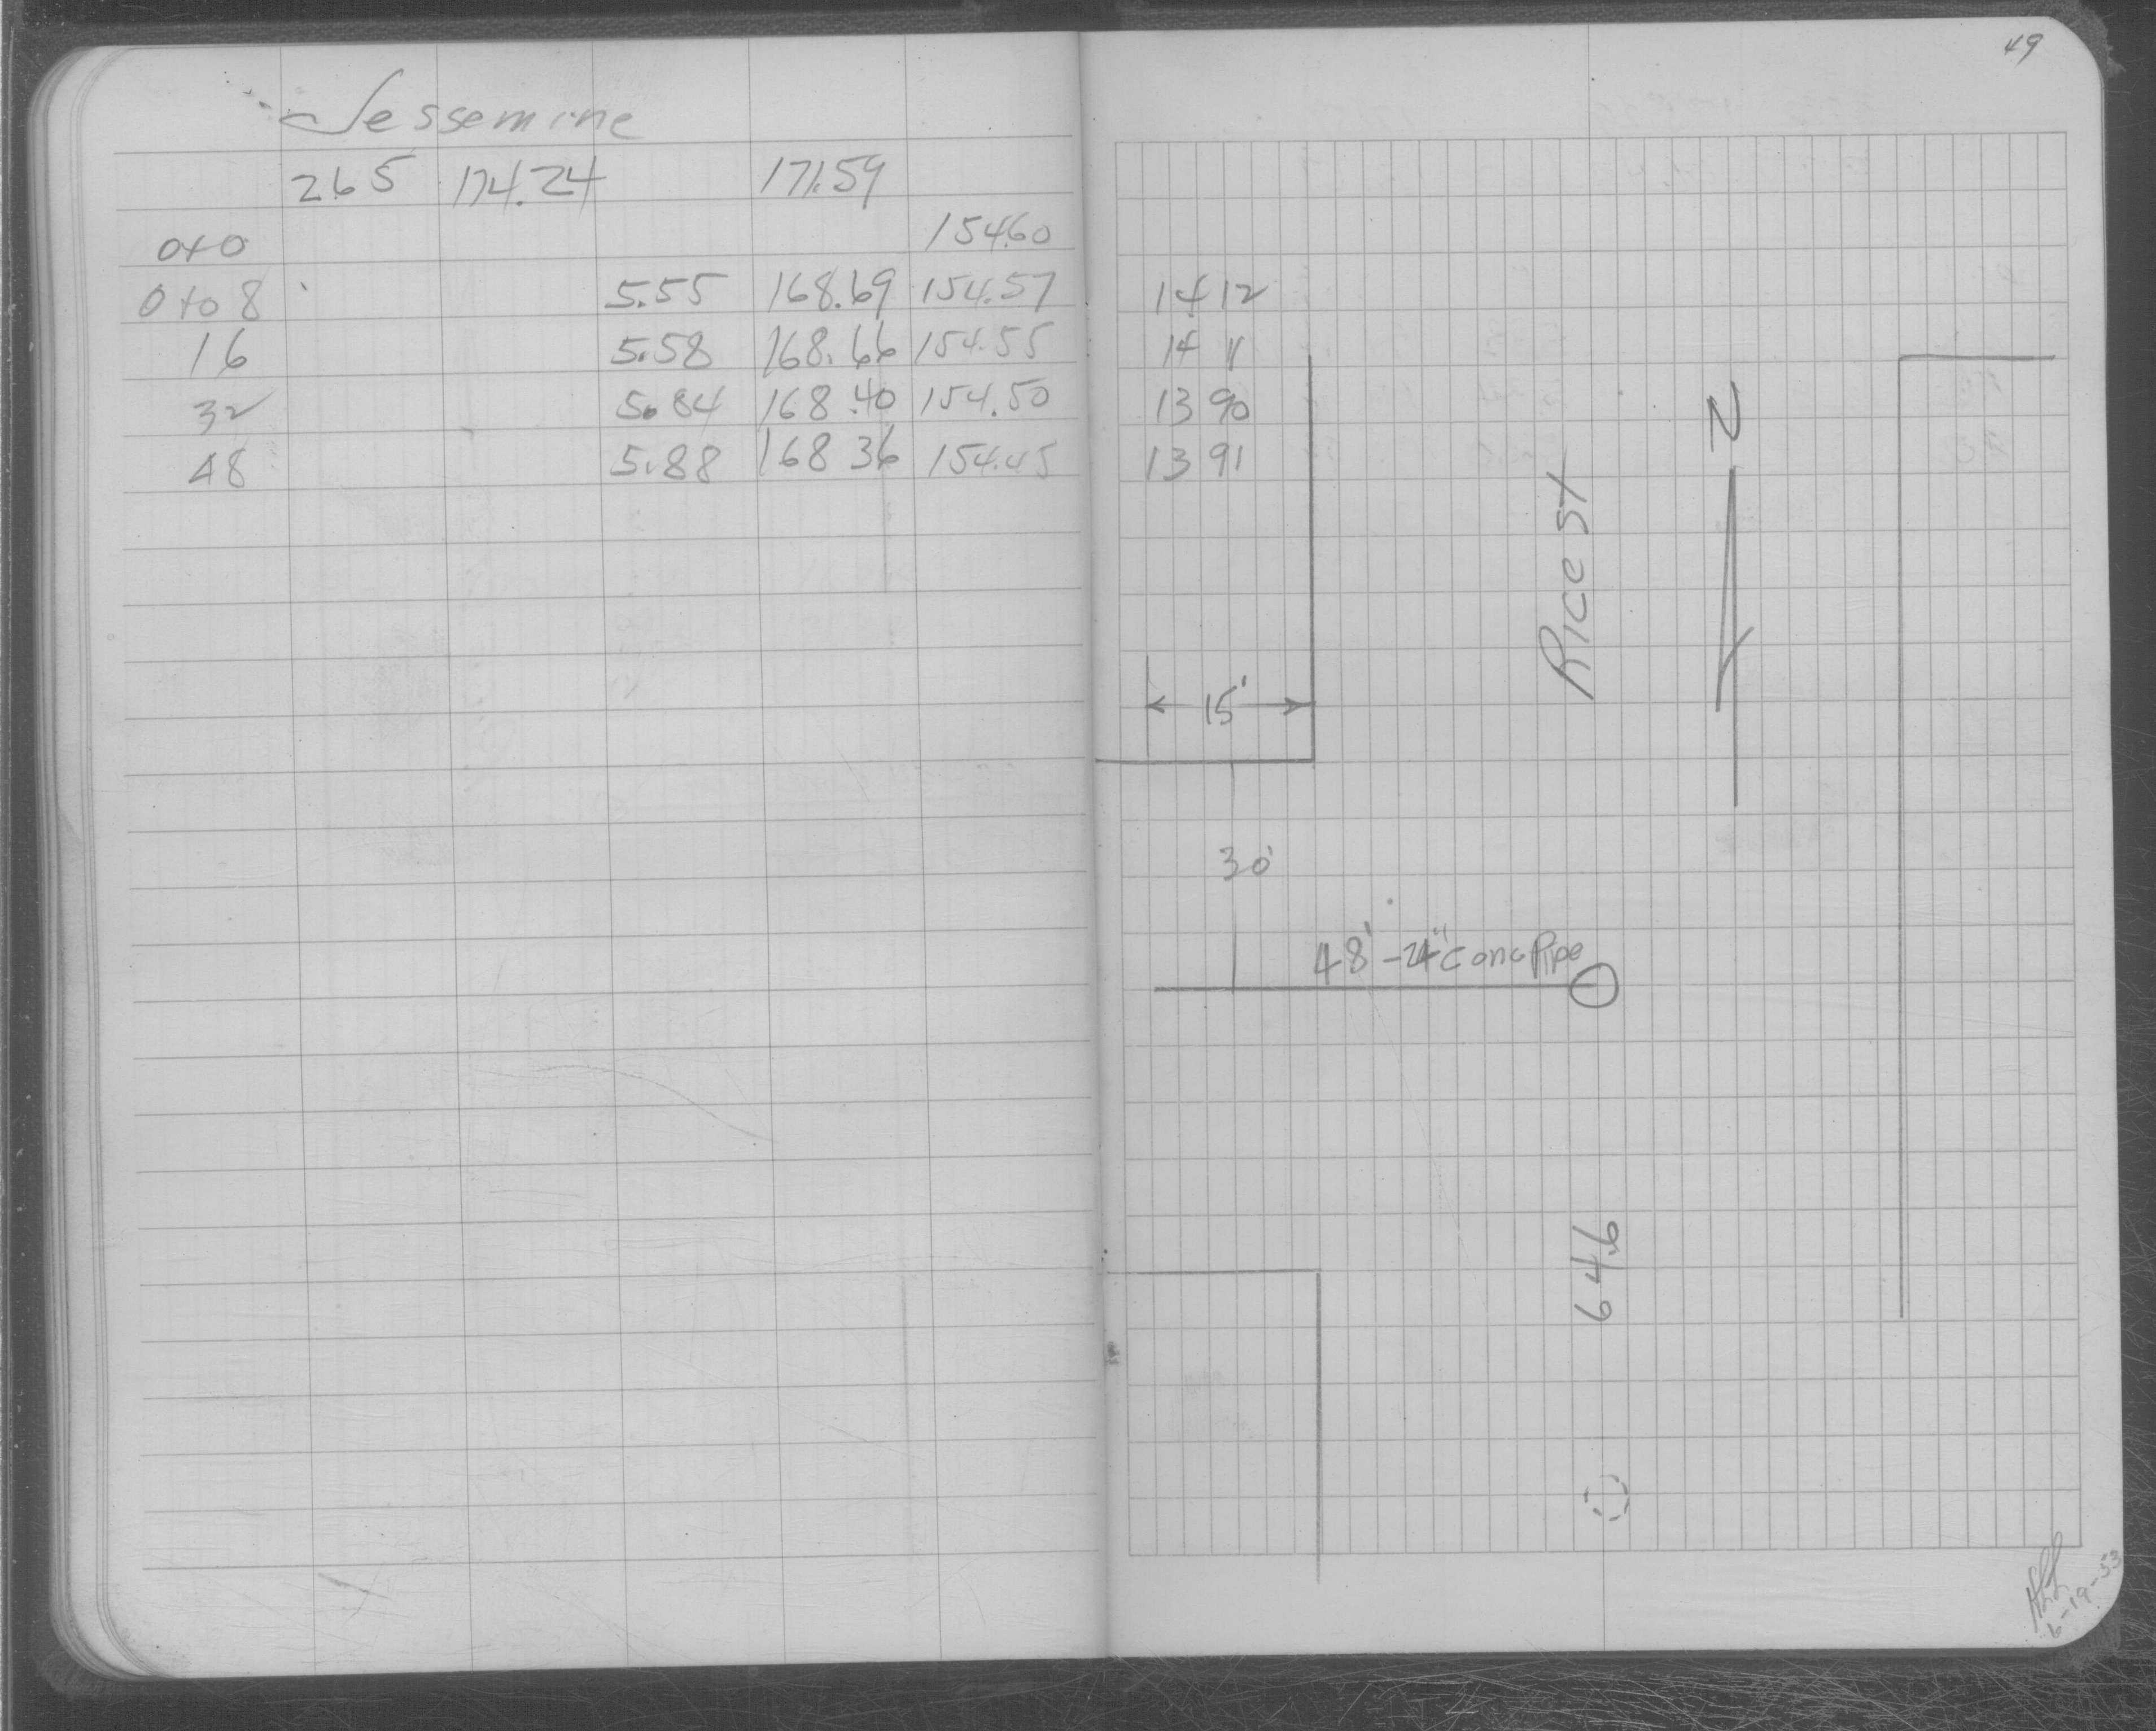 49
Jessemine
265 174.24 171.59
0+0 154.60
0+08 5.55 168.69 154.57 14 12
16 5.58 168.66 154.55 14 11
32 5.84 168.40 154.50 13 90
48 5.88 168 36 154.45 13 91
N
Rice St
15'
30'
48' - 24" Conc Pipe
64.6
6-19-53